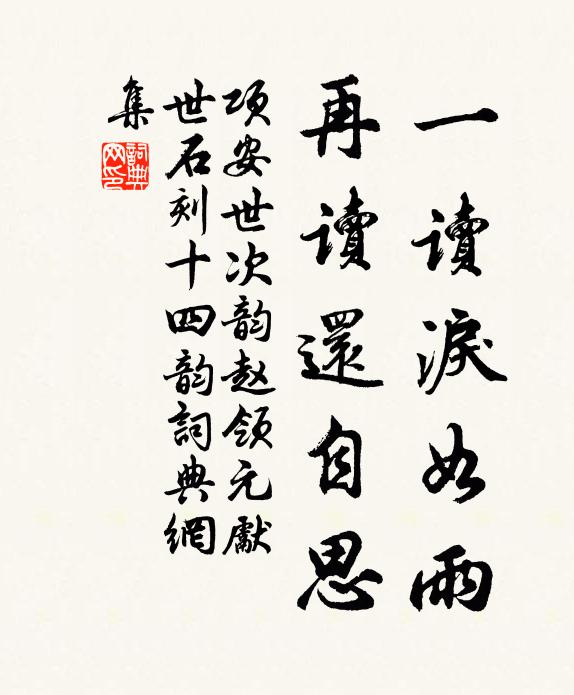 一讀淚如雨
再讀還自思
项安世次韵赵领元獻
世石刻十四韵詞典網
集
詞典
网印